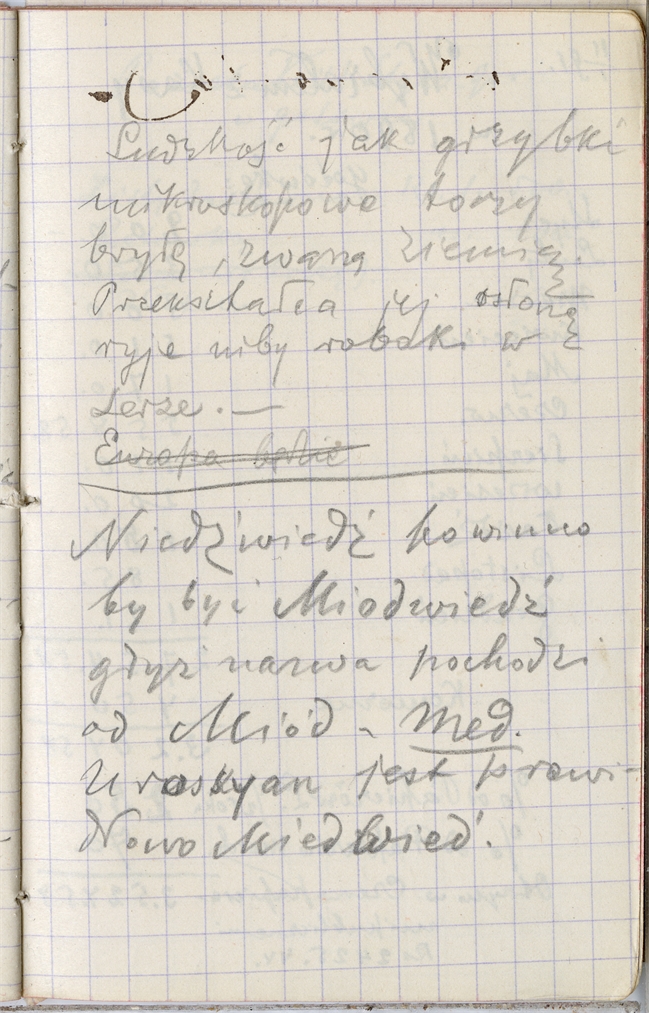 Ludzkość jak grzybki
mikroskopowe toczy
bryłę, zwaną ziemią.
Przekształca jej osłonę
ryje niby robaki w
serze. —
Europa będzie
Niedźwiedź powinno
by być Miodzwiedź
gdyż nazwa pochodzi
od Miód - Med.
U rossyan jest prawi-
dłowo Miedwied'.